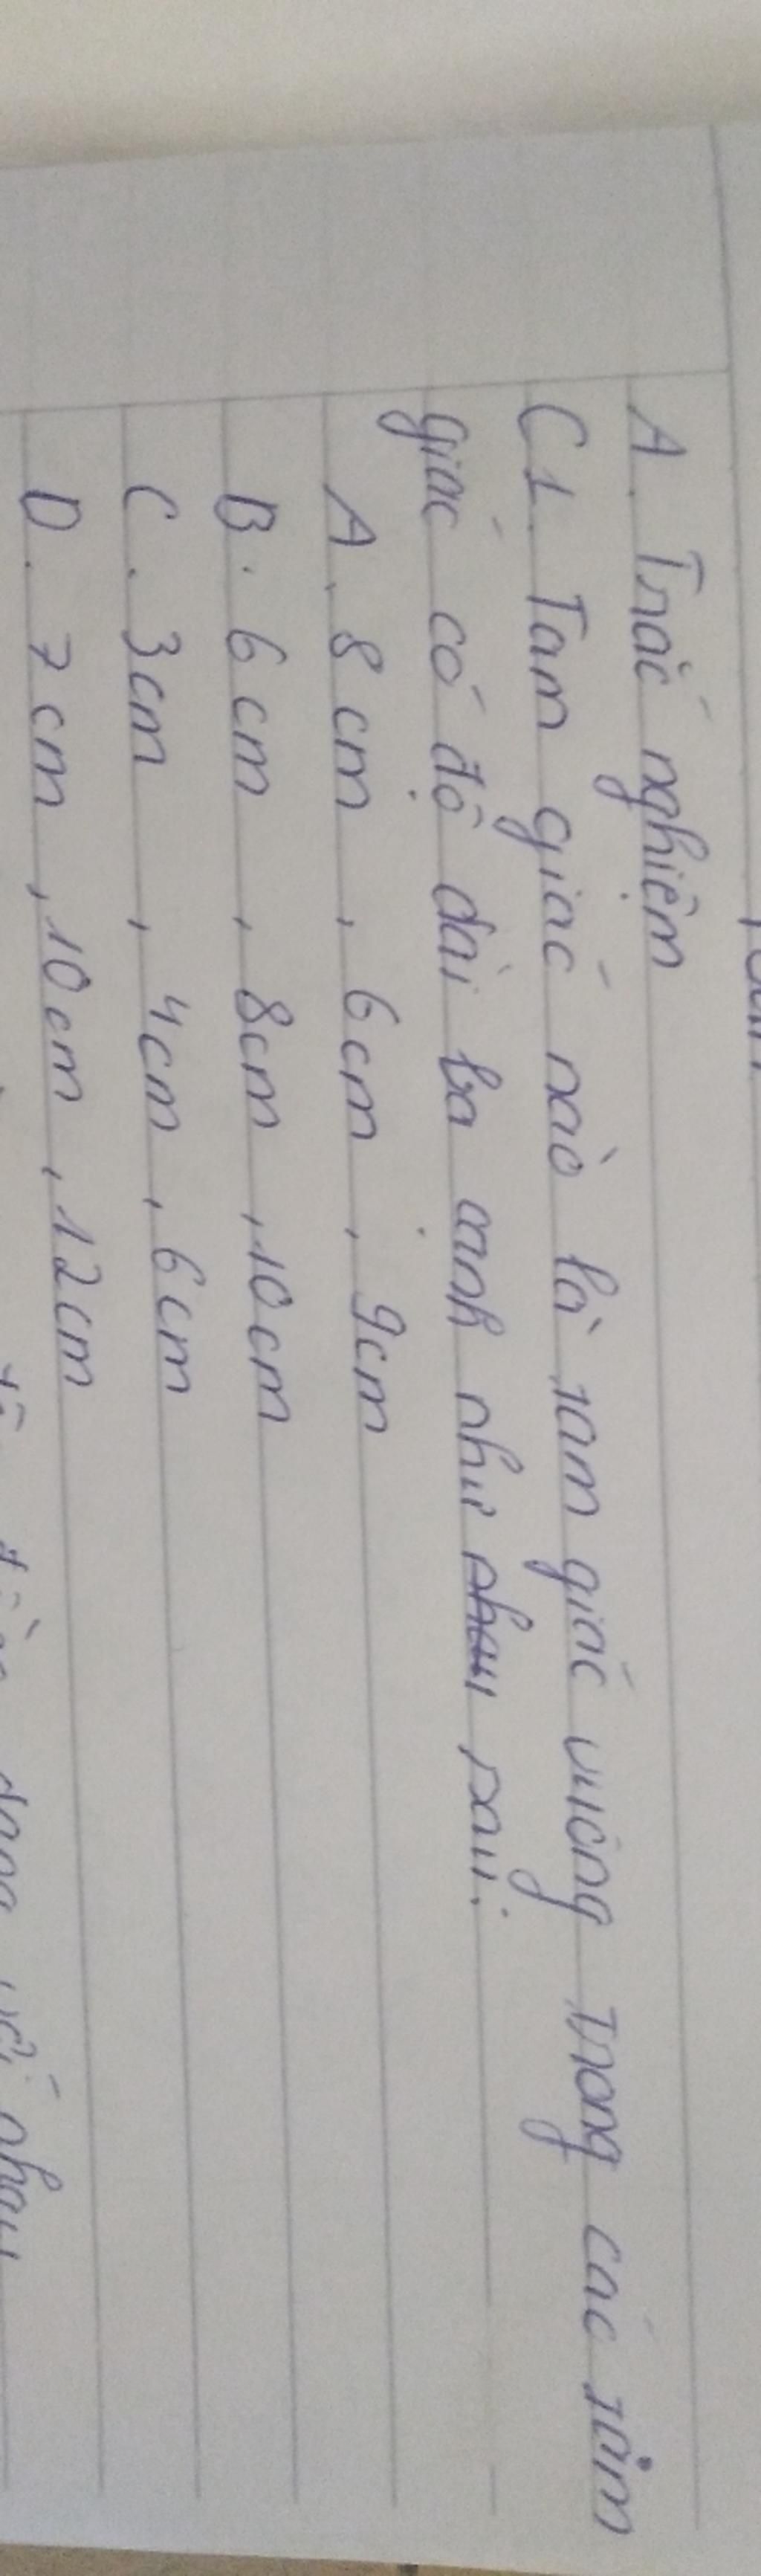 A. Trắc nghiệm
C1. Tam giác nào là tam giác vuông trong các tam
giác có độ dài ba cạnh như sau:
A. 8cm, 6cm, 9cm
B. 6cm, 8cm, 10cm
C. 3cm, 4cm, 6cm
D. 7cm, 10cm, 12cm